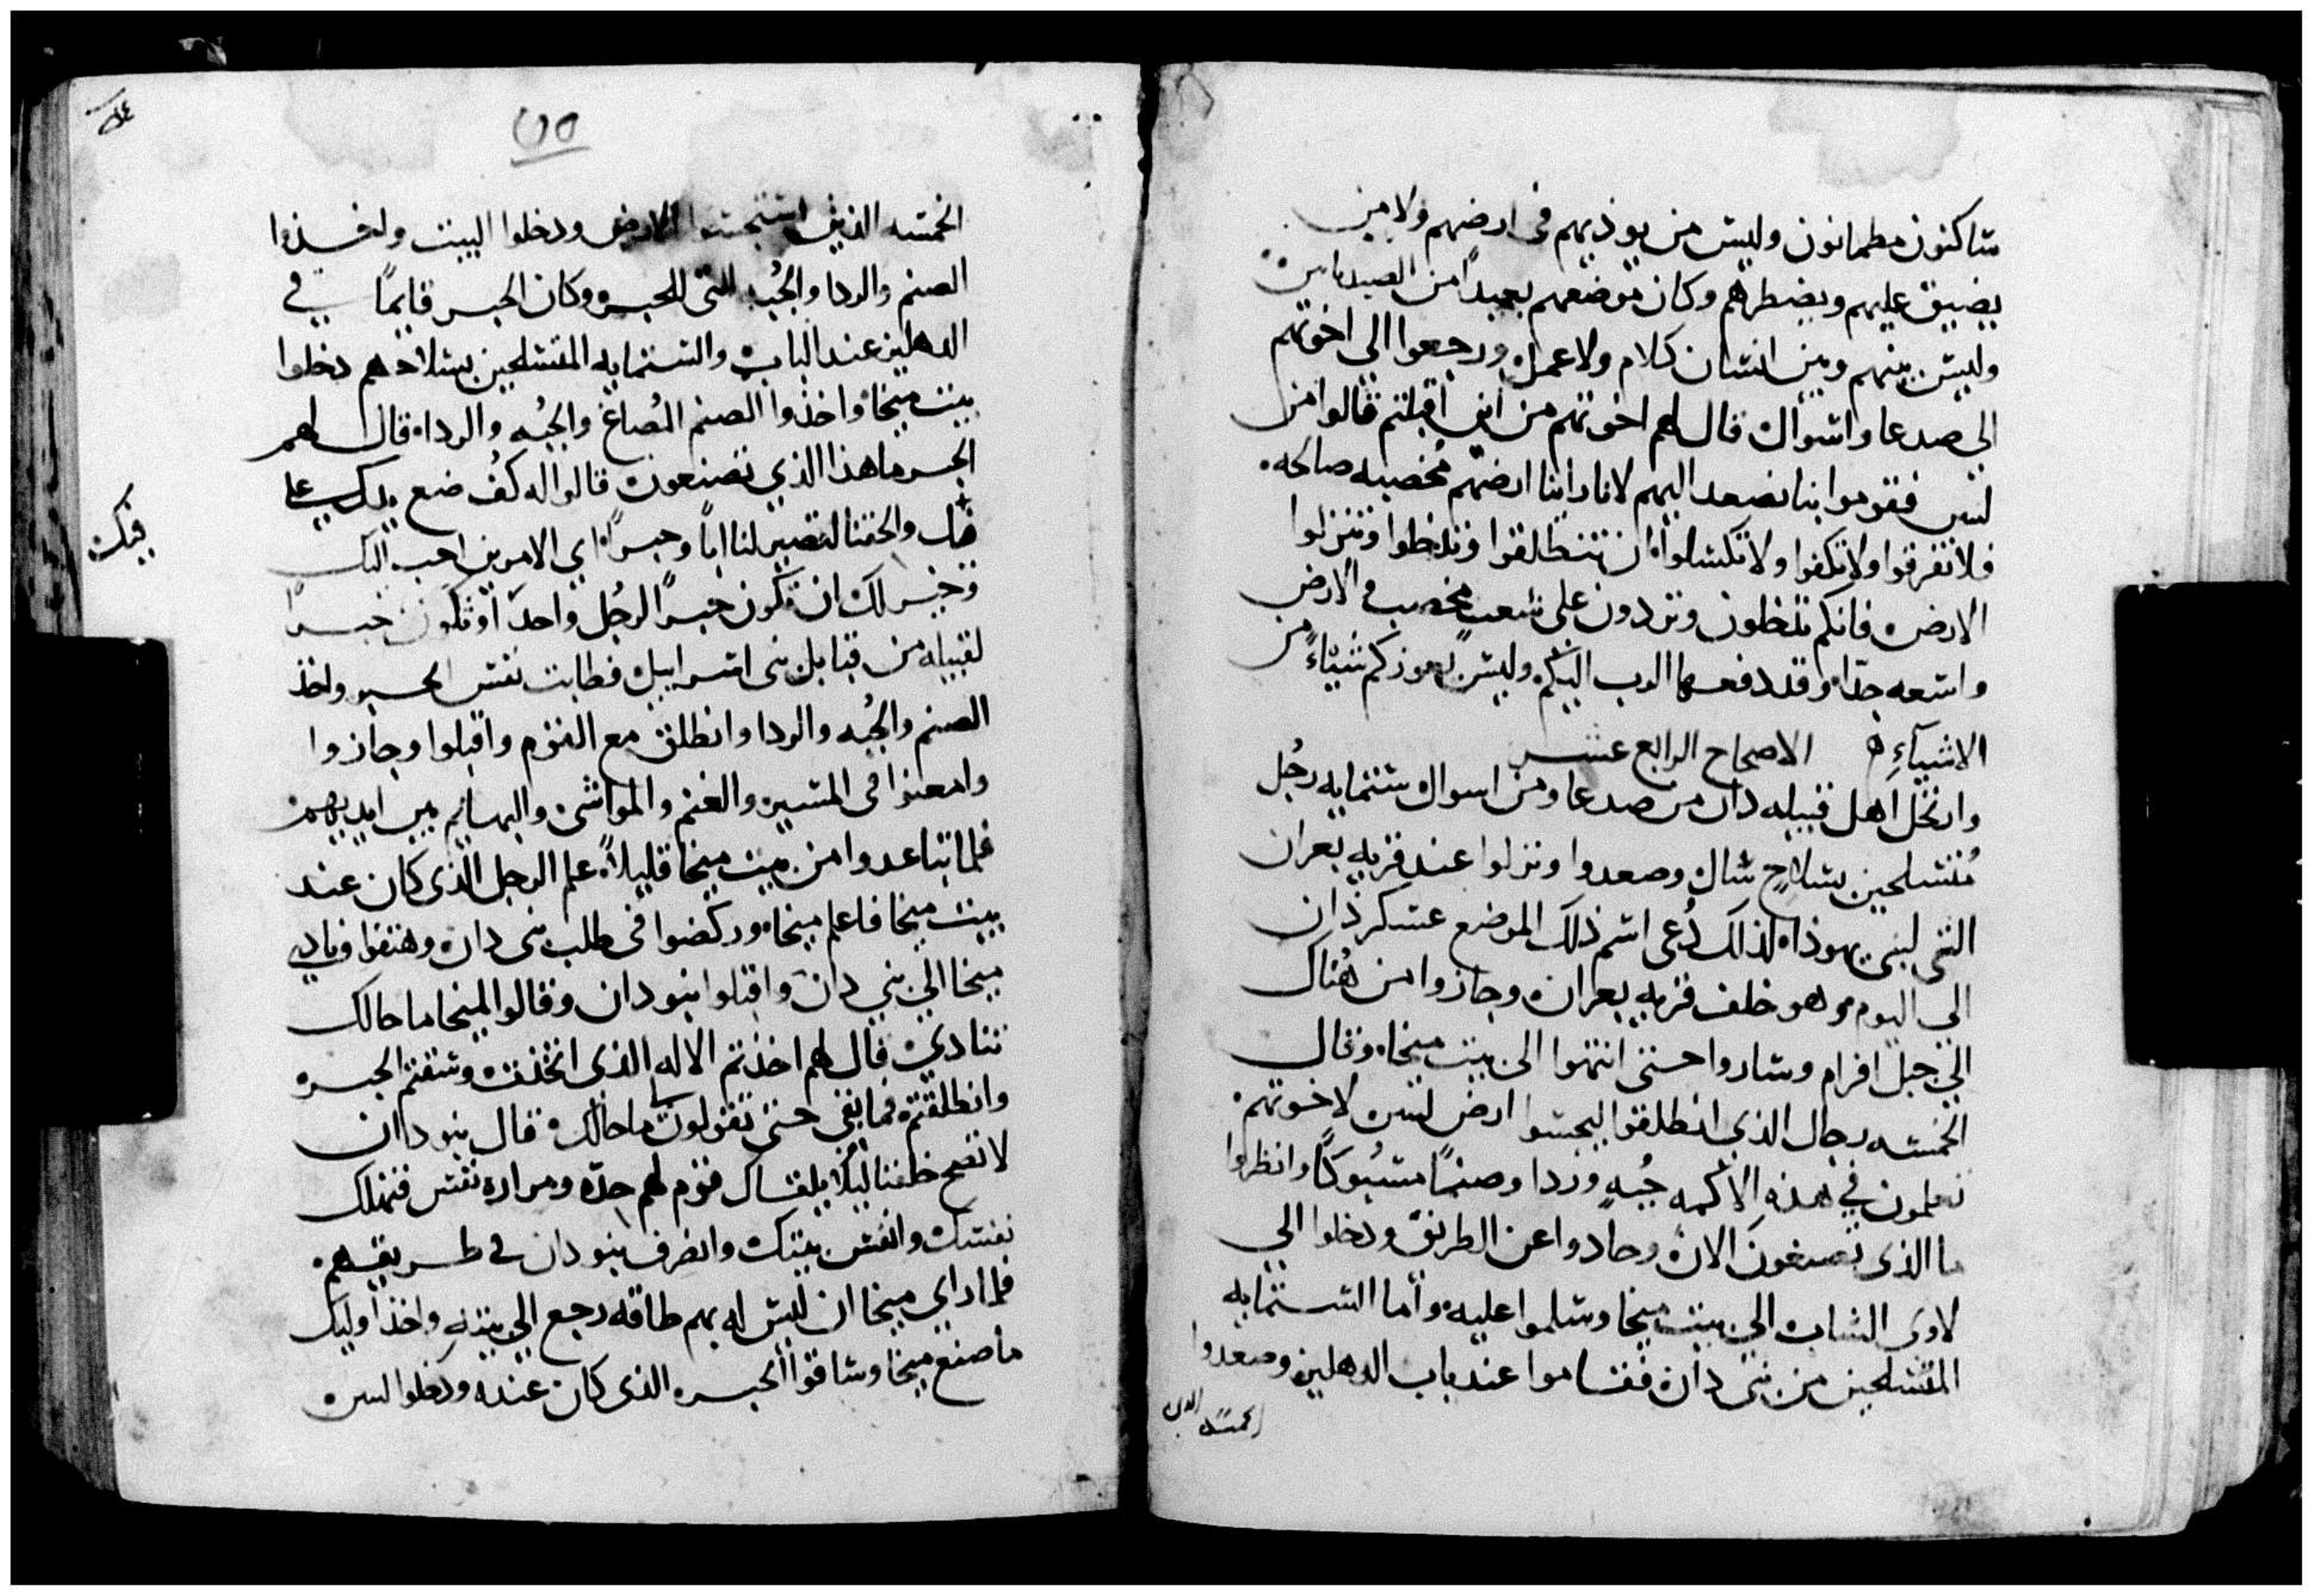 ساكنون مطمانون وليس من يوذيهم فى ارضهم ولا من
يضيق عليهم ويضطرهم وكان موضعهم بعيداً من الصيدانين
وليس بينهم وبين انسان كلام ولا عمل ورجعوا الي اخوتهم
الي صدعا واسوال قال لهم اخوتهم من أين اقبلتم قالوا من
ليس فقوموا بنا نصعد اليهم لانا راينا ارضهم مُخصبه صالحه
فلا تفرقوا ولا تكفوا ولا تكسلوا ان تنطلقوا وتدخلوا وتنزلوا
الارض فانكم تدخلون وتردون على شعب مخصب والارض
واسعه جدًا وقد دفعها الرب اليكم وليس يعوزكم شياءً من
الاشيآءِ الاصحاح الرابع عشر
وارتحل اهل قبيله دان من صدعا ومن اسوال ستمايه رجُل
مُتسلحين بسلاحٍ شاك وصعدوا ونزلوا عند قريه يعران
التى لبنى يهوذا لذلك دُعى اسم ذلك الموضع عسكر دان
الي اليوم وهو خلف قريه يعران وجازوا من هُناك
الي جبل افرام وساروا حتى انتهوا الى بيت ميخا وقال
الخمسه رجال الذي انطلقوا ليجسوا ارض ليس لاخوتهم
تعلمون في هذه الاكمه جُبه وردا وصنمًا مسبُوكًا وانظروا
ما الذى تصنعون الان وحادوا عن الطريق ودخلوا الي
لاوى الشاب الي بيت ميخا وسلموا عليه وأما الستمايه
المتسلحين من بنى دان فقاموا عند باب الدهليز وصعدوا
الخمسه الدين
٥٥
الخمسه الذين استجسوا الارض ودخلوا البيت واخذوا
الصنم والردا والجُبه التى للحبر وكان الحبر قايمًا في
الدهليز عند الباب والستمايه المتسلحين بسلاحهم دخلوا
بيت ميخا واخذوا الصنم المُصاغ والجُبه والردا قال لهم
الحبر ما هذا الذي تصنعون قالوا له كُف ضع يدك على
فيك
فاك والحقنا لتصير لنا اباً وحبراً اي الامرين احب اليك
وخير لك ان تكون حبرًا لرجُل واحد او تكون حبرًا
لقبيله من قبايل بنى اسراييل فطابت نفس الحبر واخذ
الصنم والجُبه والردا وانطلق مع القوم واقبلوا وجازوا
وامعنوا فى المسير والغنم والمواشى والبهايم بين ايديهم
فلما تباعدوا من بيت ميخا قليلاً علم الرجل الذى كان عند
بيت ميخا فاعلم ميخا وركضوا فى طلب بنى دان وهتفوا ونادي
ميخا الي بني دان واقبلوا بنو دان وقالوا لميخا ما حالك
تنادي قال لهم اخذتم الاله الذى اتخذت وسقتم الحبر
وانطلقتم فما بقى حتى تقولون ما حالك قال بنو دان
لا تصح خلفنا ليلا يلقاك قوم لهم حدّه ومراره نفس فتهلك
نفسك وانفس بيتك وانصرف بنو دان فى طريقهم
فلما راي ميخا ان ليس له بهم طاقه رجع الي بيته واخذ اوليك
ما صنع ميخا وساقوا الحبر الذى كان عنده ودخلوا ليس